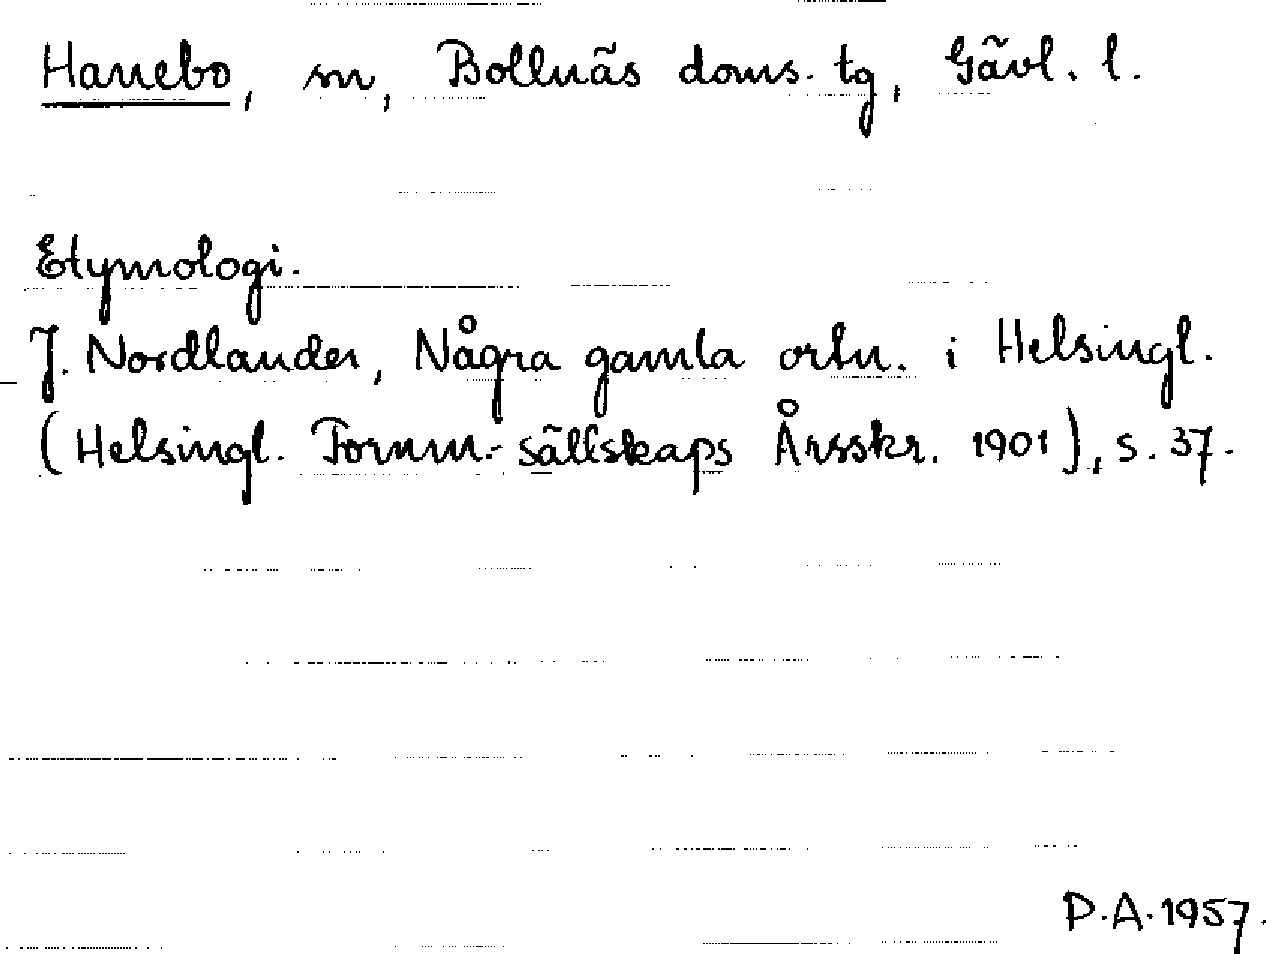 Hanebo, sn, Bollnäs doms. tg, Gävl. l.
Etymologi.
J. Nordlander, Några gamla ortn. i Helsingl.
(Helsingl. Fornm.-sällskaps Årsskr. 1901), s. 37.
P.A. 1957.